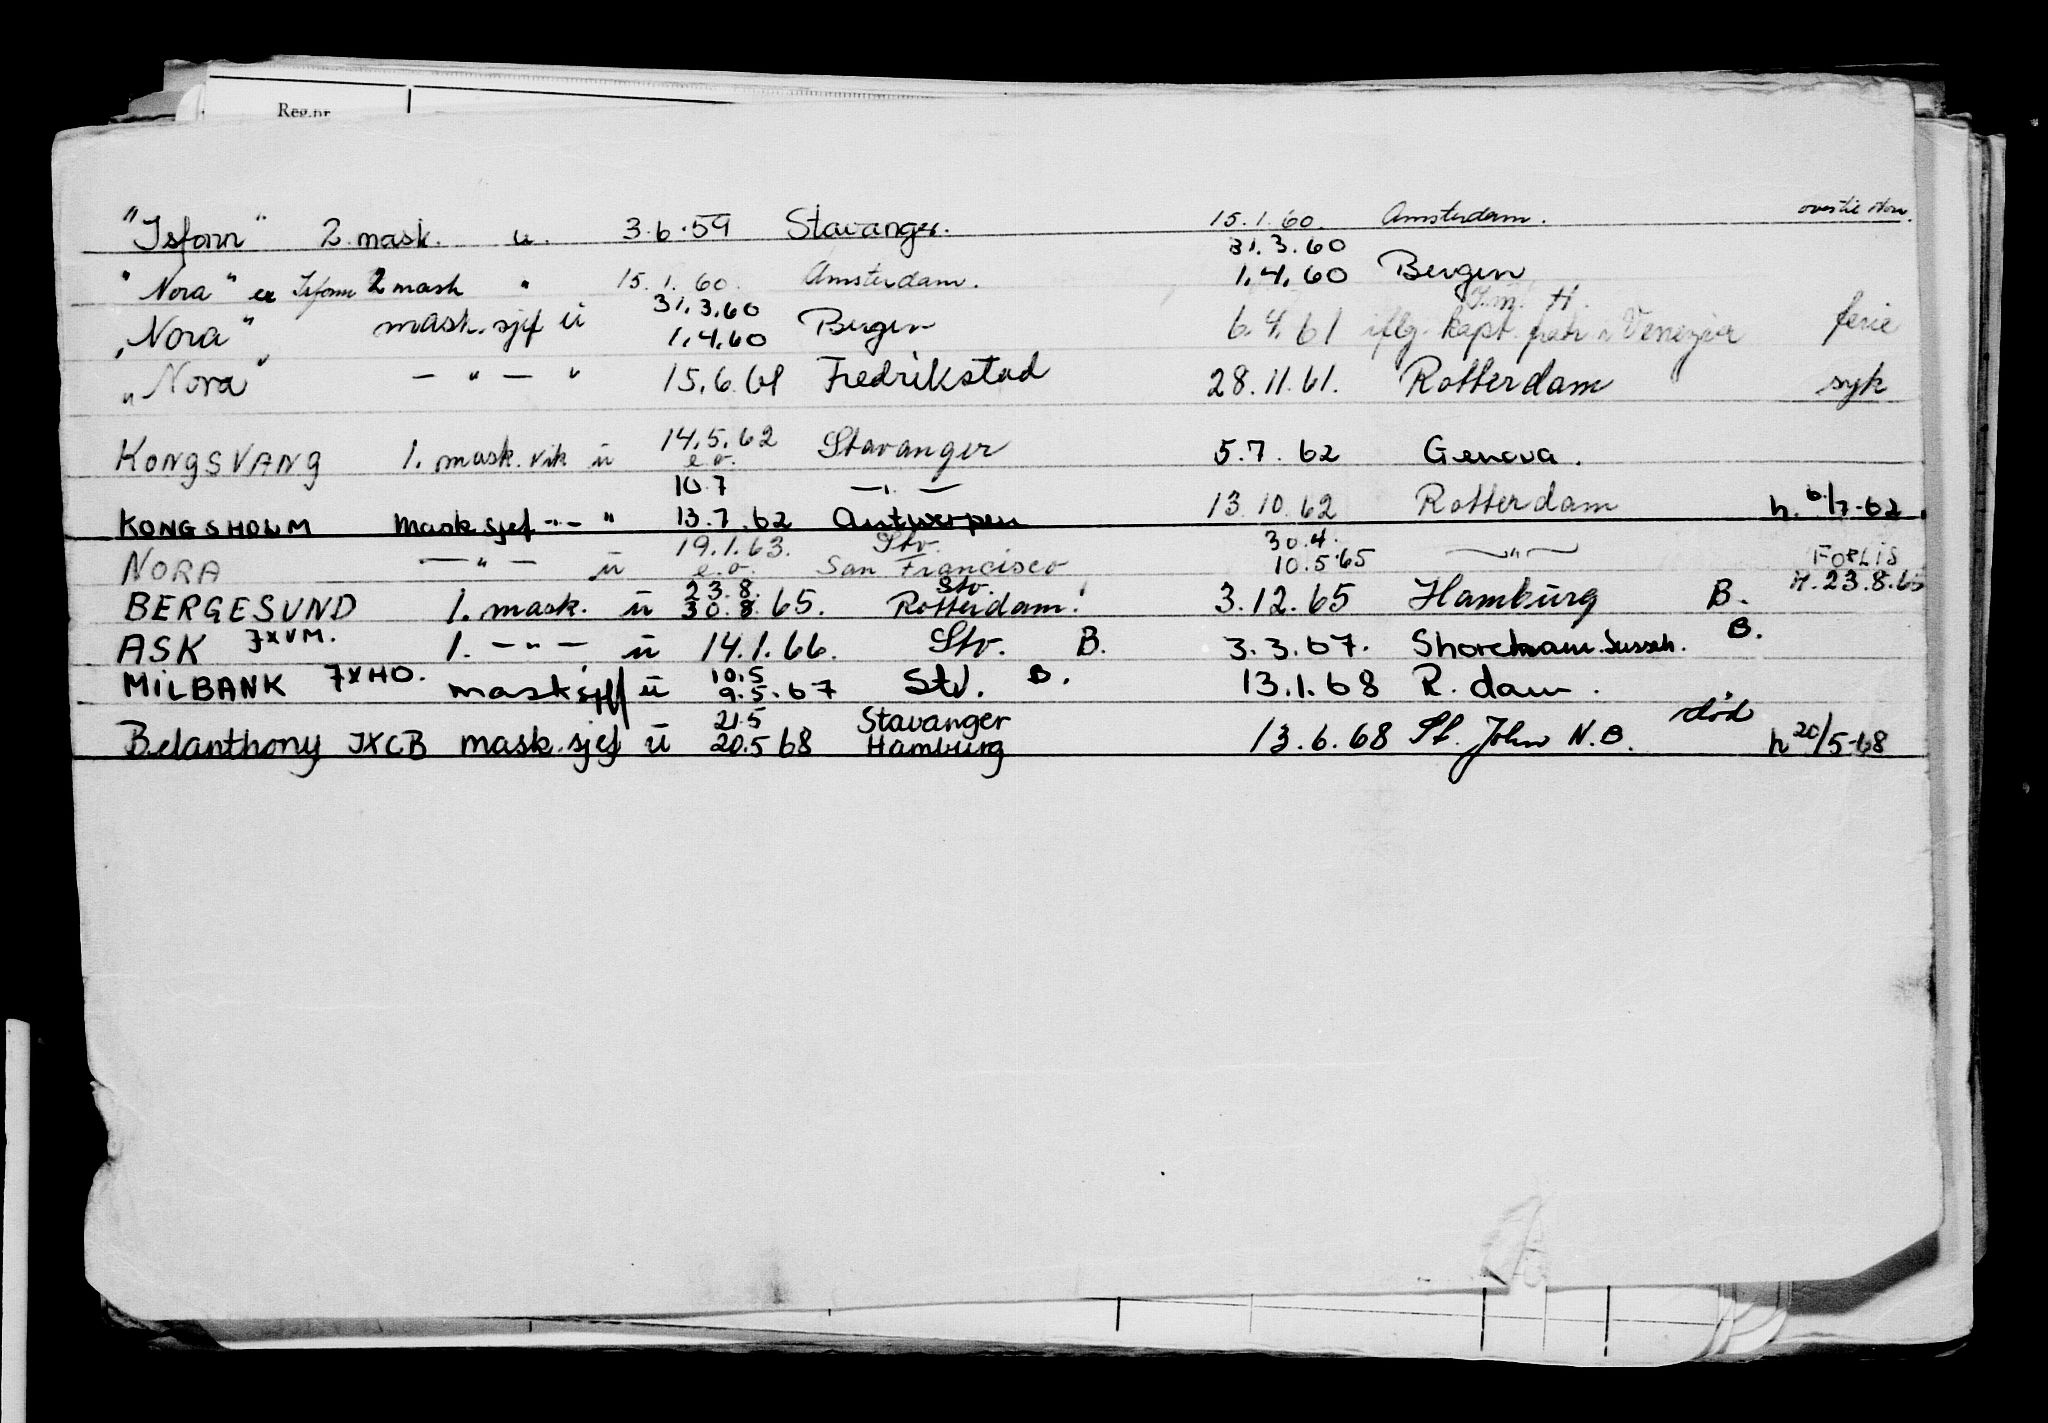 Reg.nr
"Isfonn" 2. mask. u. 3.6.59 Stavanger. 15.1.60. Amsterdam. over til Nora.
31.3.60
"Nora" ex Isfonn 2 mask " 15.1.60. Amsterdam. 1.4.60 Bergen
31.3.60 I.m. H.
"Nora" mask.sjef ü 1.4.60 Bergen 6.4.61 iflg. kapt. i Venezia ferie
"Nora" — " — " 15.6.61 Fredrikstad 28.11.61. Rotterdam syk
14.5.62
KONGSVANG 1. mask. vik ü e.o. Stavanger 5.7.62 Genova.
10.7 —"—
KONGSHOLM Mask sjef -"- " 13.7.62 Antwerpen 13.10.62 Rotterdam h. 6/7-62.
19.1.63. Stv. 30.4.
NORA —"— ü e.o. San Francisco 10.5.65 —"— FORLIS
23.8. Stv. H. 23.8.65
BERGESUND 1. mask. ü 30.8.65. Rotterdam. 3.12.65 Hamburg B.
ASK JXVM. 1. —"— ü 14.1.66. Stv. B. 3.3.67. Shoreham. Sussex. B.
10.5
MILBANK JXHO. masksjef ü 9.5.67 Stv. B. 13.1.68 R.dam.
21.5 Stavanger død
Belanthony JXCB mask.sjef ü 20.5 68 Hamburg 13.6.68 St. John N.B. h 20/5-68